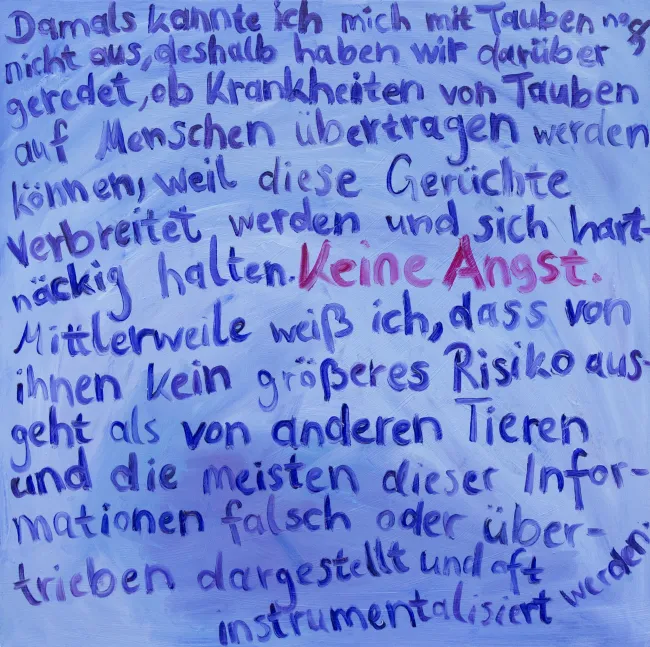 Damals kannte ich mich mit Tauben noch
nicht aus, deshalb haben wir darüber
geredet, ob Krankheiten von Tauben
auf Menschen übertragen werden
können, weil diese Gerüchte
verbreitet werden und sich hart-
näckig halten. Keine Angst.
Mittlerweile weiß ich, dass von
ihnen kein größeres Risiko aus-
geht als von anderen Tieren
und die meisten dieser Infor-
mationen falsch oder über-
trieben dargestellt und oft
instrumentalisiert werden.